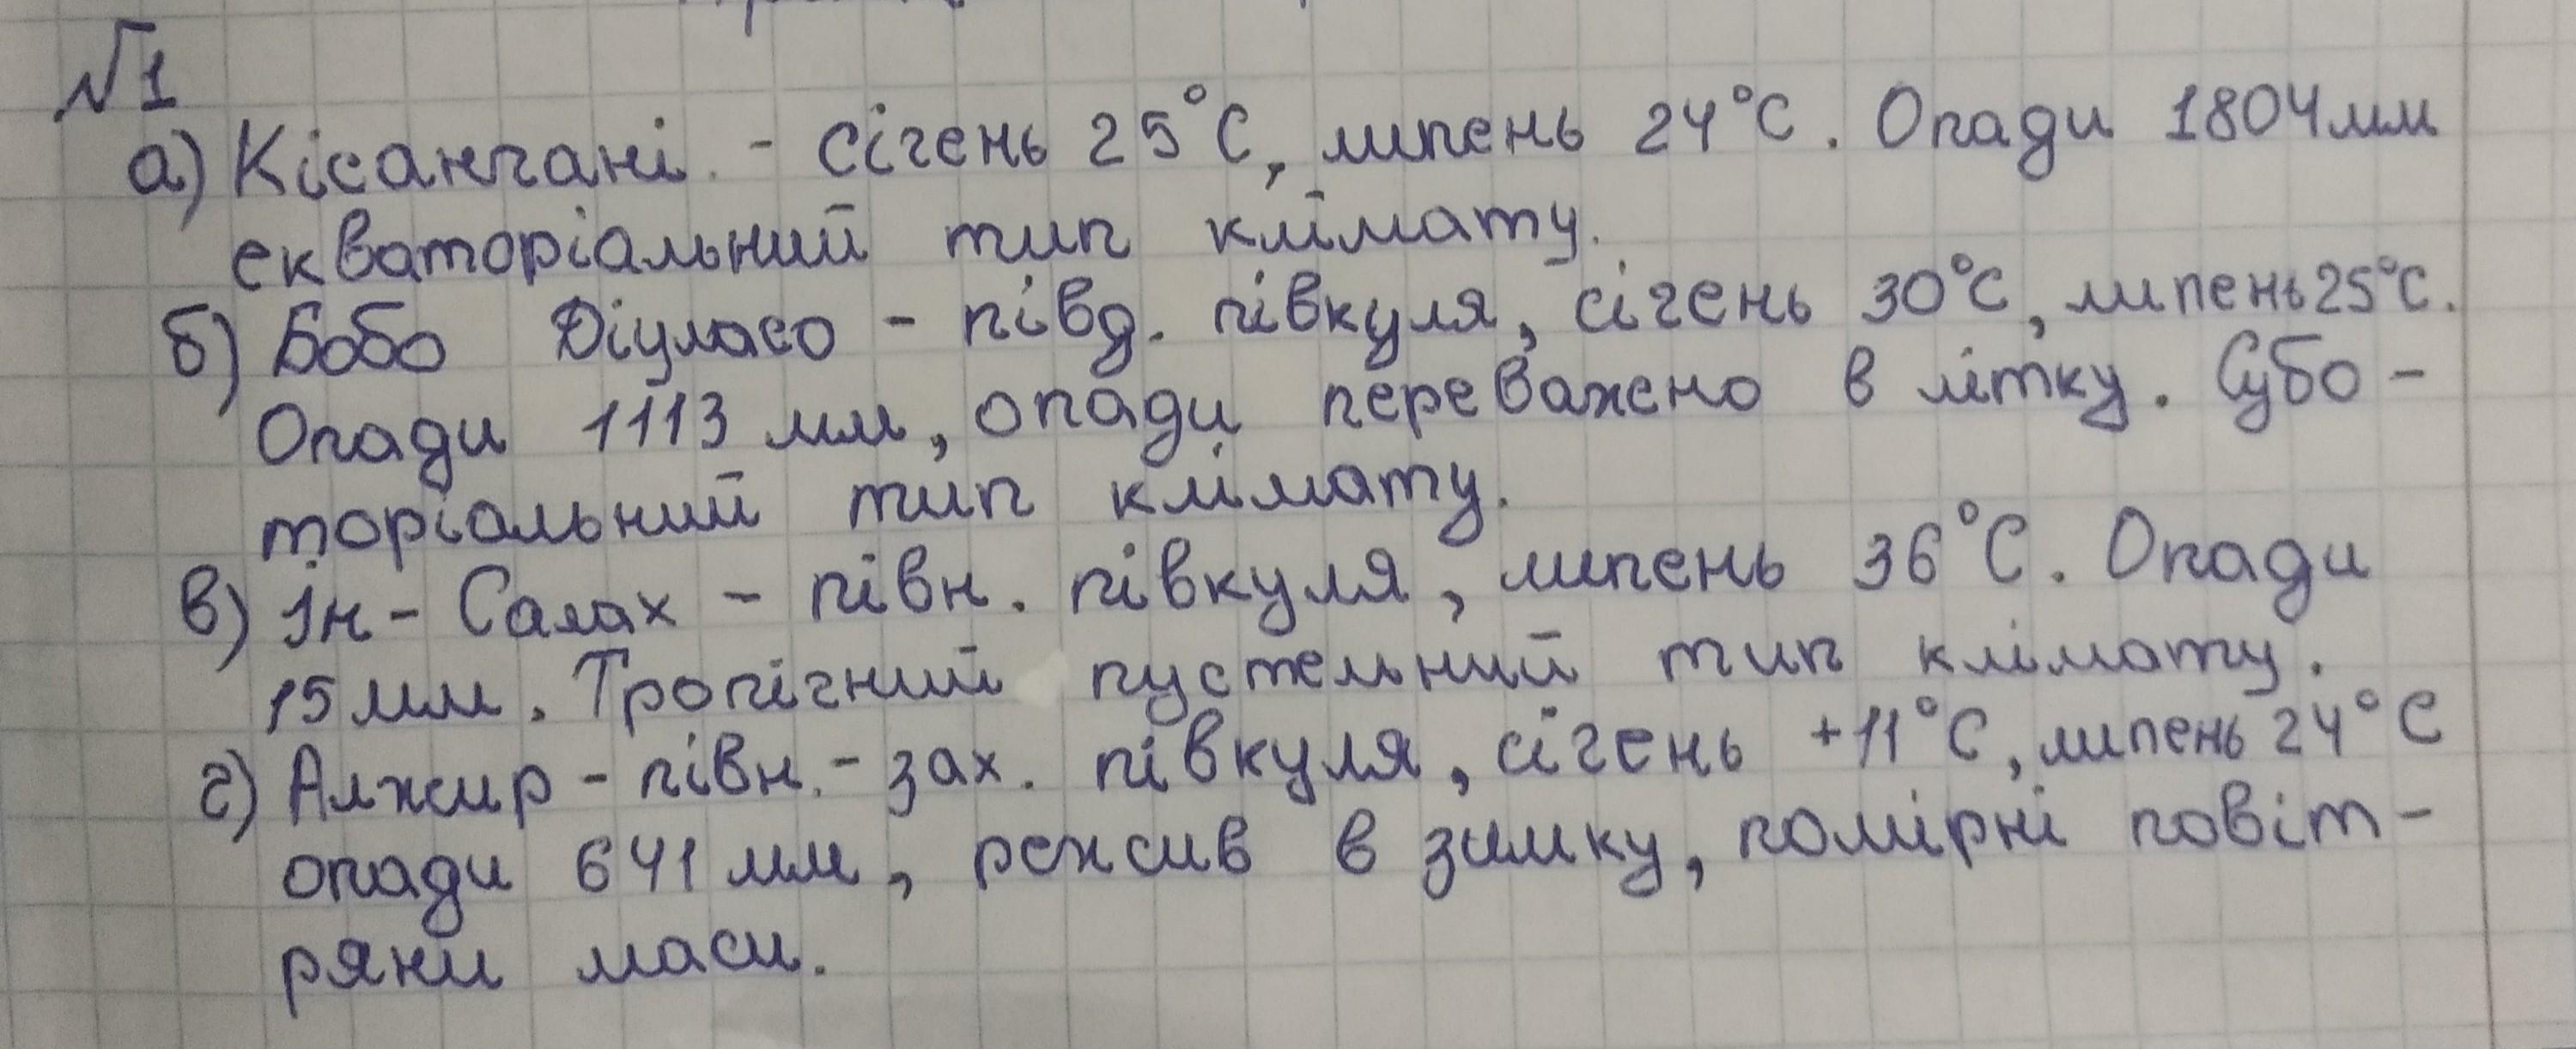 №1
а) Кісангані - січень 25°С, липень 24°С. Опади 1804мм
екваторіальний тип клімату.
б) Бобо Діуласо - півд. півкуля, січень 30°С, липень 25°С.
Опади 1113 мм, опади переважено в літку. Субо-
торіальний тип клімату.
в) Ін - Салах - півн. півкуля, липень 36°С. Опади
15 мм. Тропічний пустельний тип клімату.
г) Алжир - півн. - зах. півкуля, січень +11°С, липень 24°С
опади 641 мм, режив в зимку, помірні повіт-
ряни маси.